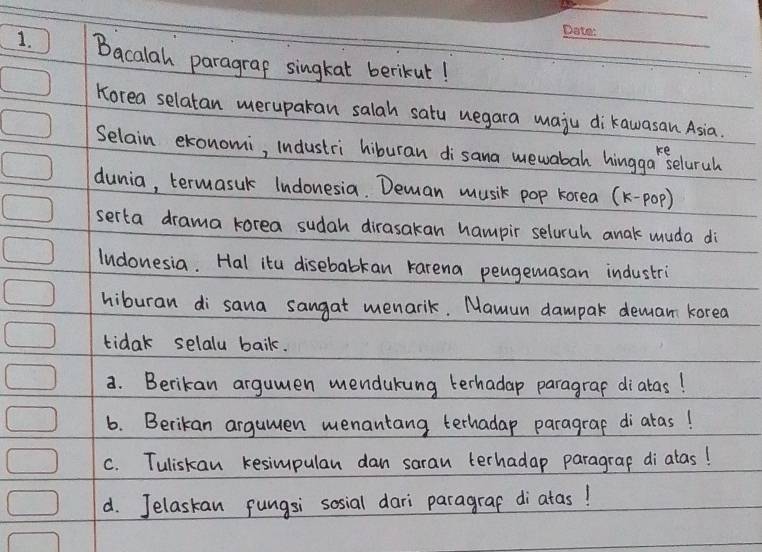 Date:
1. Bacalah paragraf singkat berikut!
Korea selatan merupakan salah satu negara maju di kawasan Asia.
Selain ekonomi, Industri hiburan di sana mewabah hingga ke seluruh
dunia, termasuk Indonesia. Deman musik pop korea (K-pop)
serta drama korea sudah dirasakan hampir seluruh anak muda di
Indonesia. Hal itu disebabkan karena pengemasan industri
hiburan di sana sangat menarik. Namun dampak deman korea
tidak selalu baik.
a. Berikan argumen mendukung terhadap paragraf di atas!
b. Berikan argumen menantang terhadap paragraf di atas!
c. Tuliskan kesimpulan dan saran terhadap paragraf di atas!
d. Jelaskan fungsi sosial dari paragraf di atas!